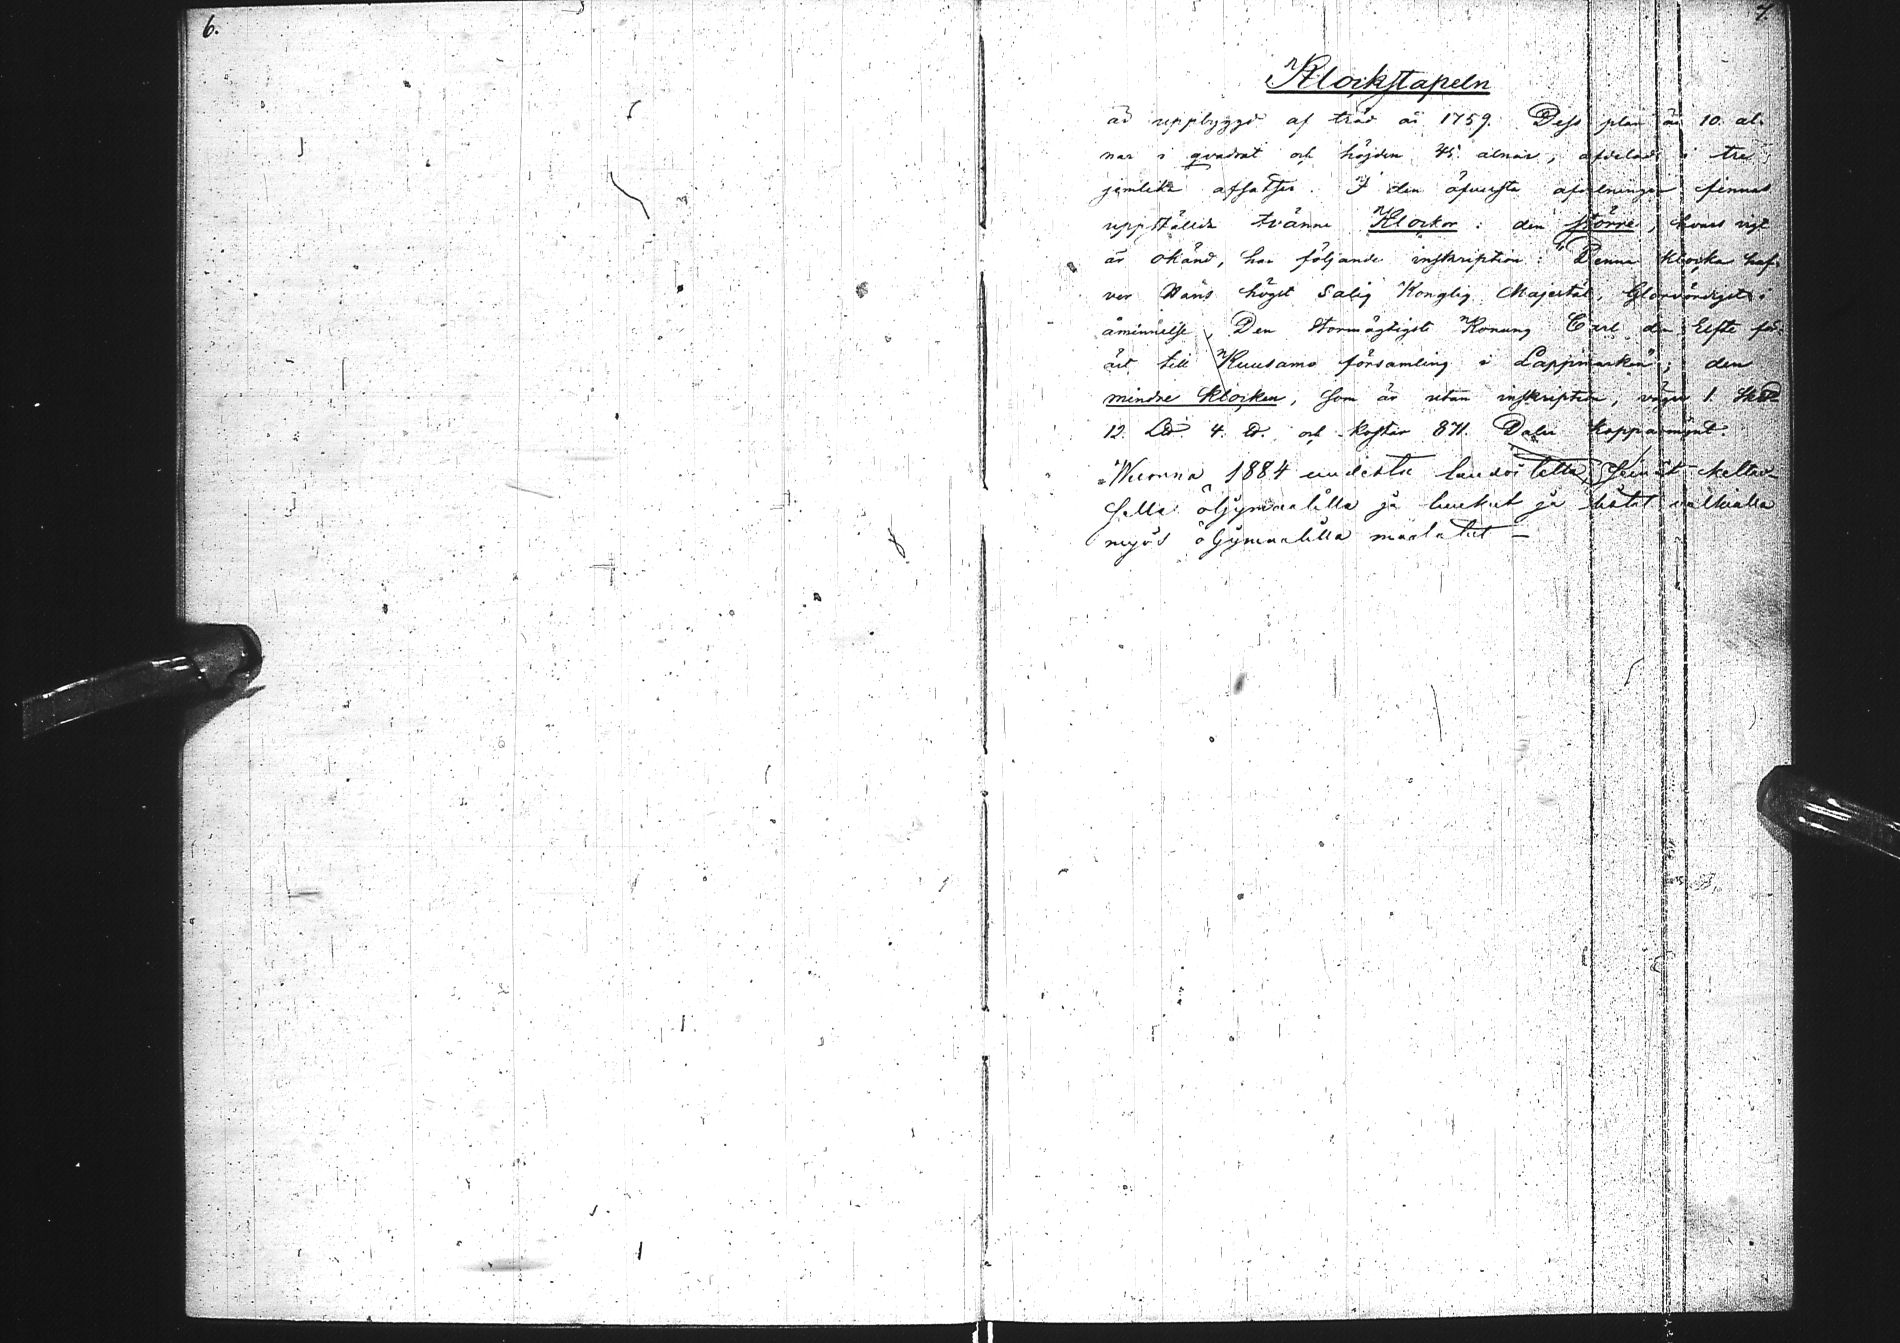 6.
7.
Klockstapeln
är uppbyggd af träd år 1759. Dess plan är 10. al-
nar i qvadrat och höjden 45. alnar, afdelade i tre
jemlika afsatser. I den öfversta afdelningen finnas
uppställda tvänne Klockor: den större, hvars vigt
är okänd, har följande inskription: "Denna klocka haf-
ver Hans högst Salig Konglig Majestät, Glorvördigst i
åminnelse, Den Stormägtigste Konung Carl den Elfte för-
ärt till Kuusamo församling i Lappmarken"; den
mindre klockan, som är utan inskription, väger 1. Sk℔
12. L℔. 4. ℔. och kostar 871. Daler Kopparmynt.
Wuonna 1884 uudesta laudoitettu, seinät keltai-
sella öljymaalilla ja luukut ja listat valkialla
myös öljymaalilla maalatut —